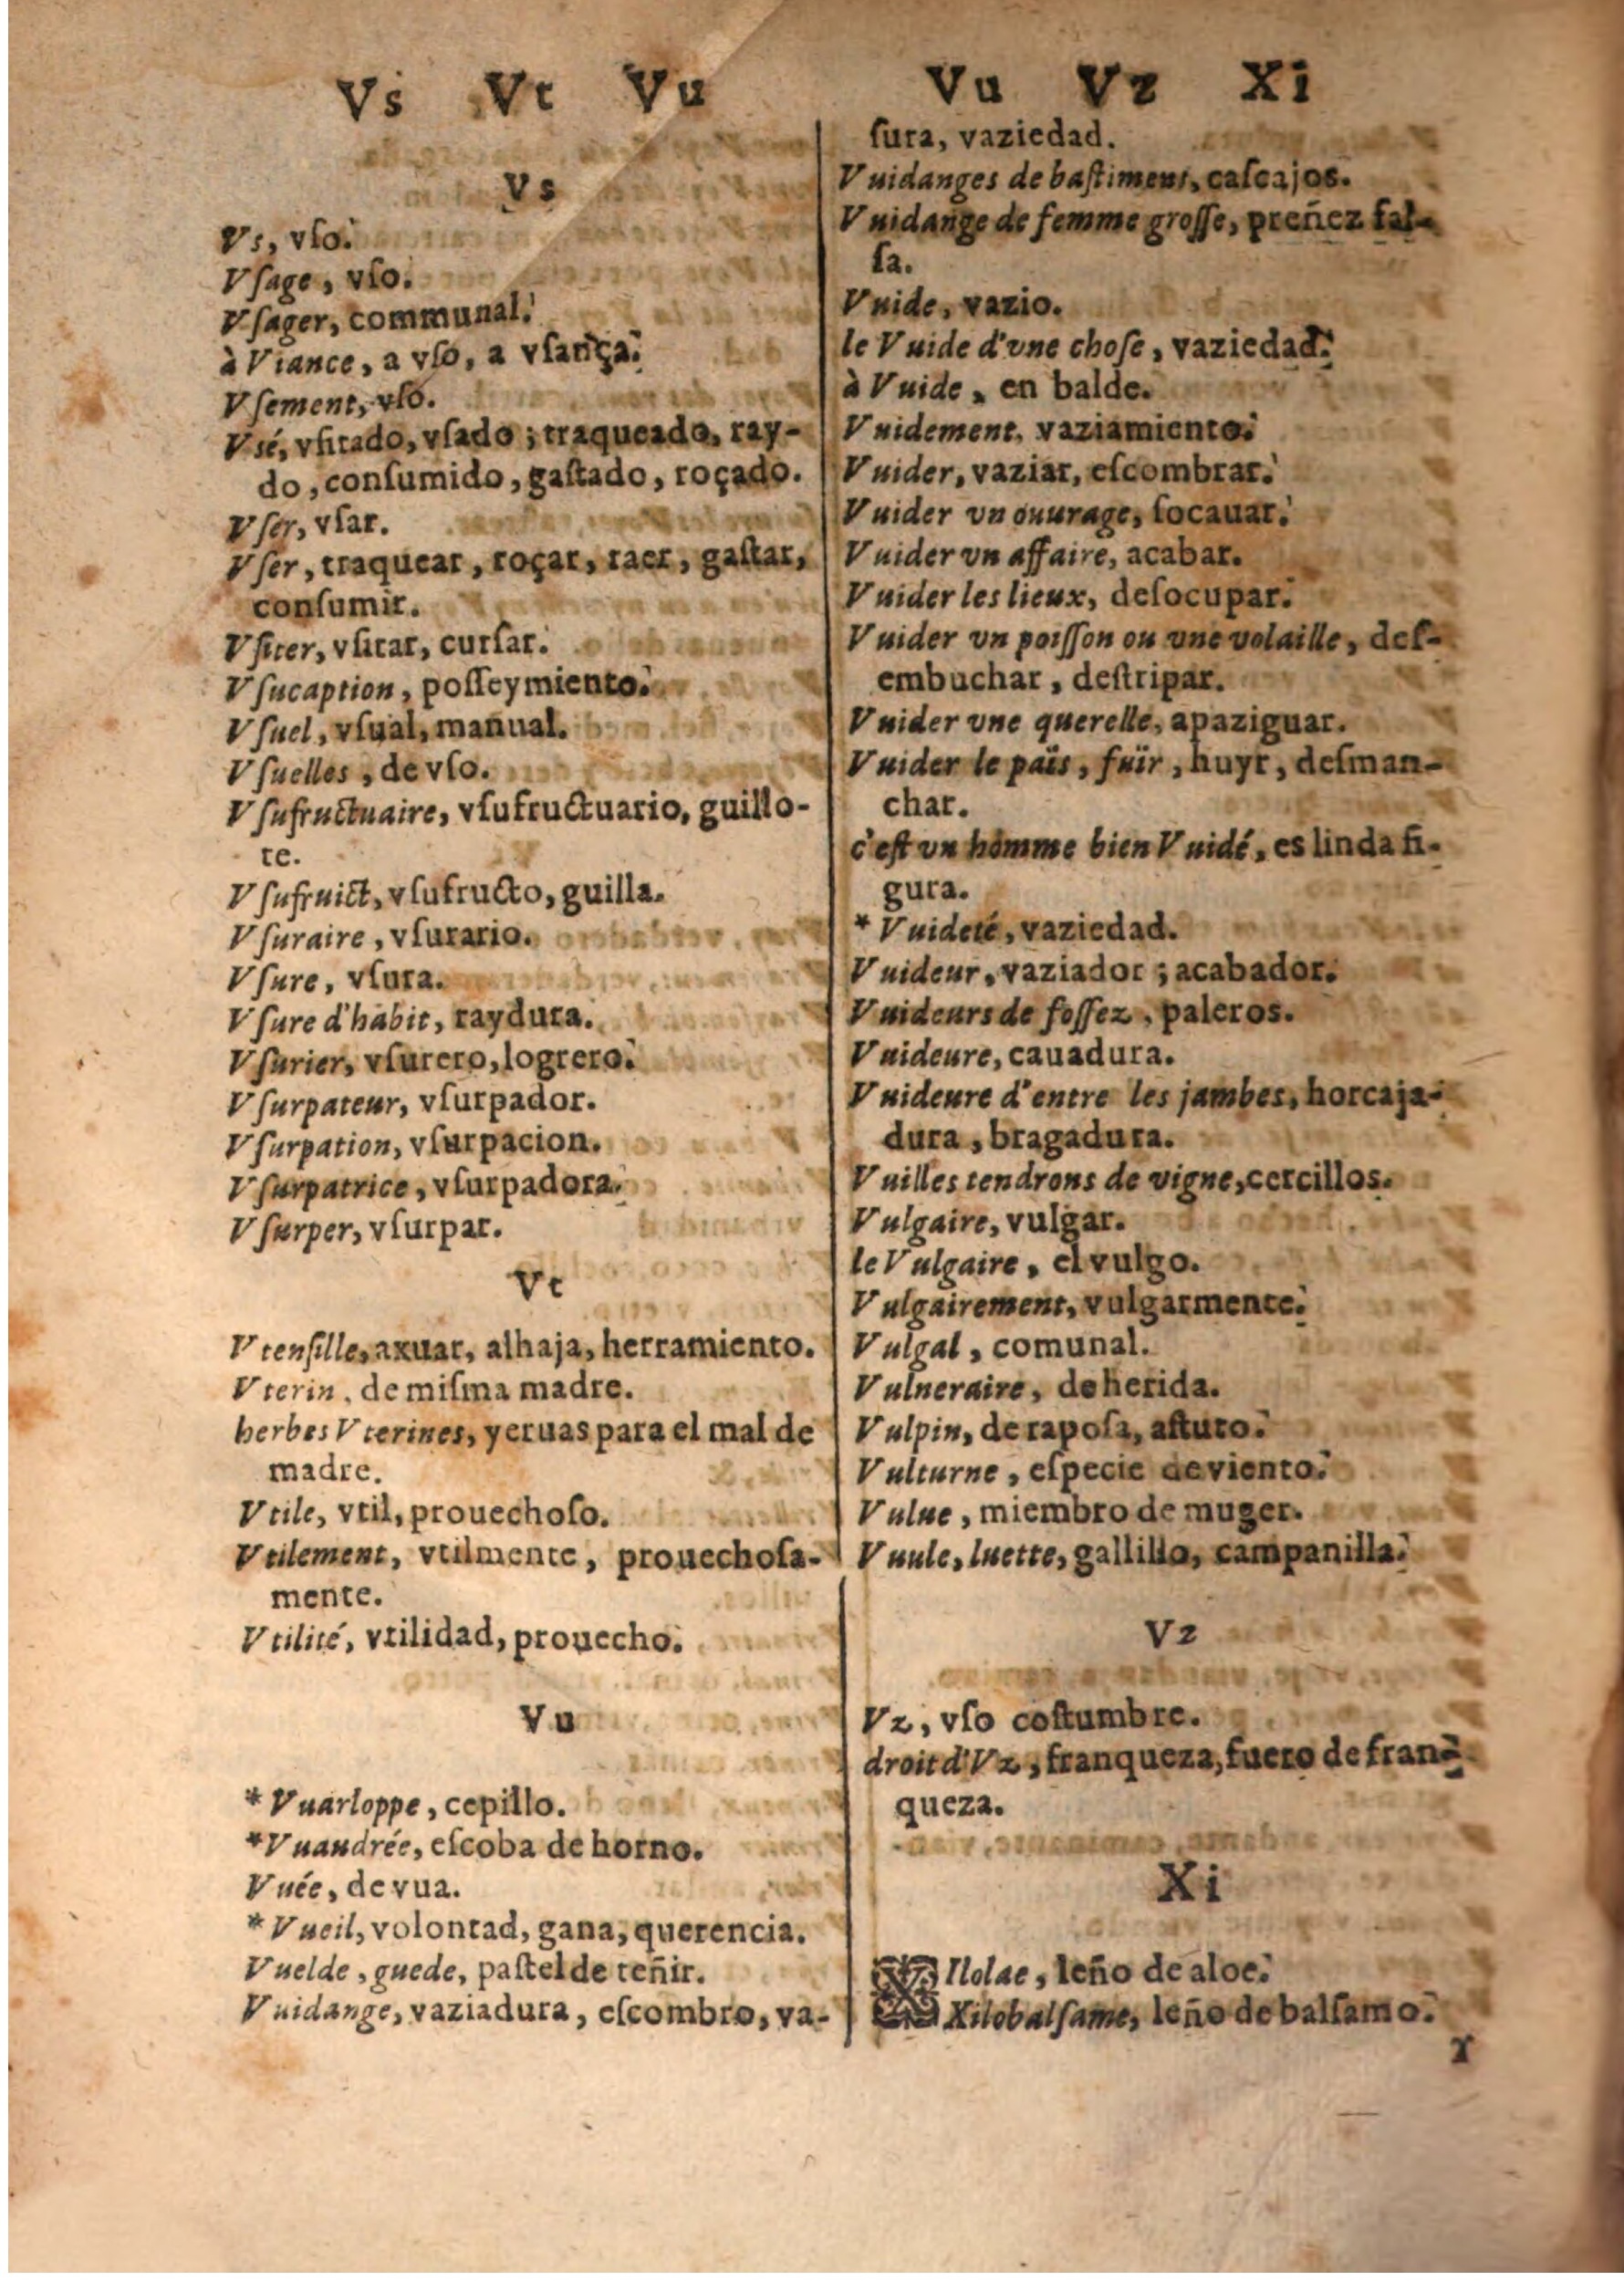 Vs Vt Vu
Vs
Vs, vſo.
Vſage, vſo.
Vſager, communal.
à Vſance, a vſo, a vſança.
Vſement, vſo.
Vsé, vſitado, vſado ; traqueado, ray-
do, conſumido, gaſtado, roçado.
Vſer, vſar.
Vſer, traquear, roçar, raer, gaſtar,
conſumir.
Vſiter, vſitar, curſar.
Vſucaption, poſſeymiento.
Vſuel, vſual, manual.
Vſuelles, de vſo.
Vſufructuaire, vſufructuario, guillo-
te.
Vſufruict, vſufructo, guilla.
Vſuraire, vſurario.
Vſure, vſura.
Vſure d'habit, raydura.
Vſurier, vſurero, logrero.
Vſurpateur, vſurpador.
Vſurpation, vſurpacion.
Vſurpatrice, vſurpadora.
Vſurper, vſurpar.
Vt
Vtenſille, axuar, alhaja, herramiento.
Vterin, de miſma madre.
herbes Vterines, yeruas para el mal de
madre.
Vtile, vtil, prouechoſo.
Vtilement, vtilmente, prouechoſa-
mente.
Vtilité, vtilidad, prouecho.
Vu
* Vuarloppe, cepillo.
* Vuaudrée, eſcoba de horno.
Vuée, de vua.
* Vueil, volontad, gana, querencia.
Vuelde, guede, paſtel de teñir.
Vuidange, vaziadura, eſcombro, va-
Vu Vz Xi
ſura, vaziedad.
Vuidanges de baſtiment, caſcajos.
Vuidange de femme groſſe, preñez fal-
ſa.
Vuide, vazio.
le Vuide d'vne choſe, vaziedad.
à Vuide, en balde.
Vuidement, vaziamiento.
Vuider, vaziar, eſcombrar.
Vuider vn ouurage, ſocauar.
Vuider vn affaire, acabar.
Vuider les lieux, deſocupar.
Vuider vn poiſſon ou vne volaille, deſ-
embuchar, deſtripar.
Vuider vne querelle, apaziguar.
Vuider le païs, fuïr, huyr, deſman-
char.
c'eſt vn homme bien Vuidé, es linda fi-
gura.
* Vuideté, vaziedad.
Vuideur, vaziador ; acabador.
Vuideurs de foſſez, paleros.
Vuideure, cauadura.
Vuideure d'entre les jambes, horcaja-
dura, bragadura.
Vuilles tendrons de vigne, cercillos.
Vulgaire, vulgar.
le Vulgaire, el vulgo.
Vulgairement, vulgarmente.
Vulgal, comunal.
Vulneraire, de herida.
Vulpin, de rapoſa, aſtuto.
Vulturne, eſpecie de viento.
Vulue, miembro de muger.
Vuule, luette, gallillo, campanilla.
Vz
Vz, vſo coſtumbre.
droit d'Vz, franqueza, fuero de fran-
queza.
Xi
XIlolae, leño de aloe.
Xilobalſame, leño de balſamo.
Y